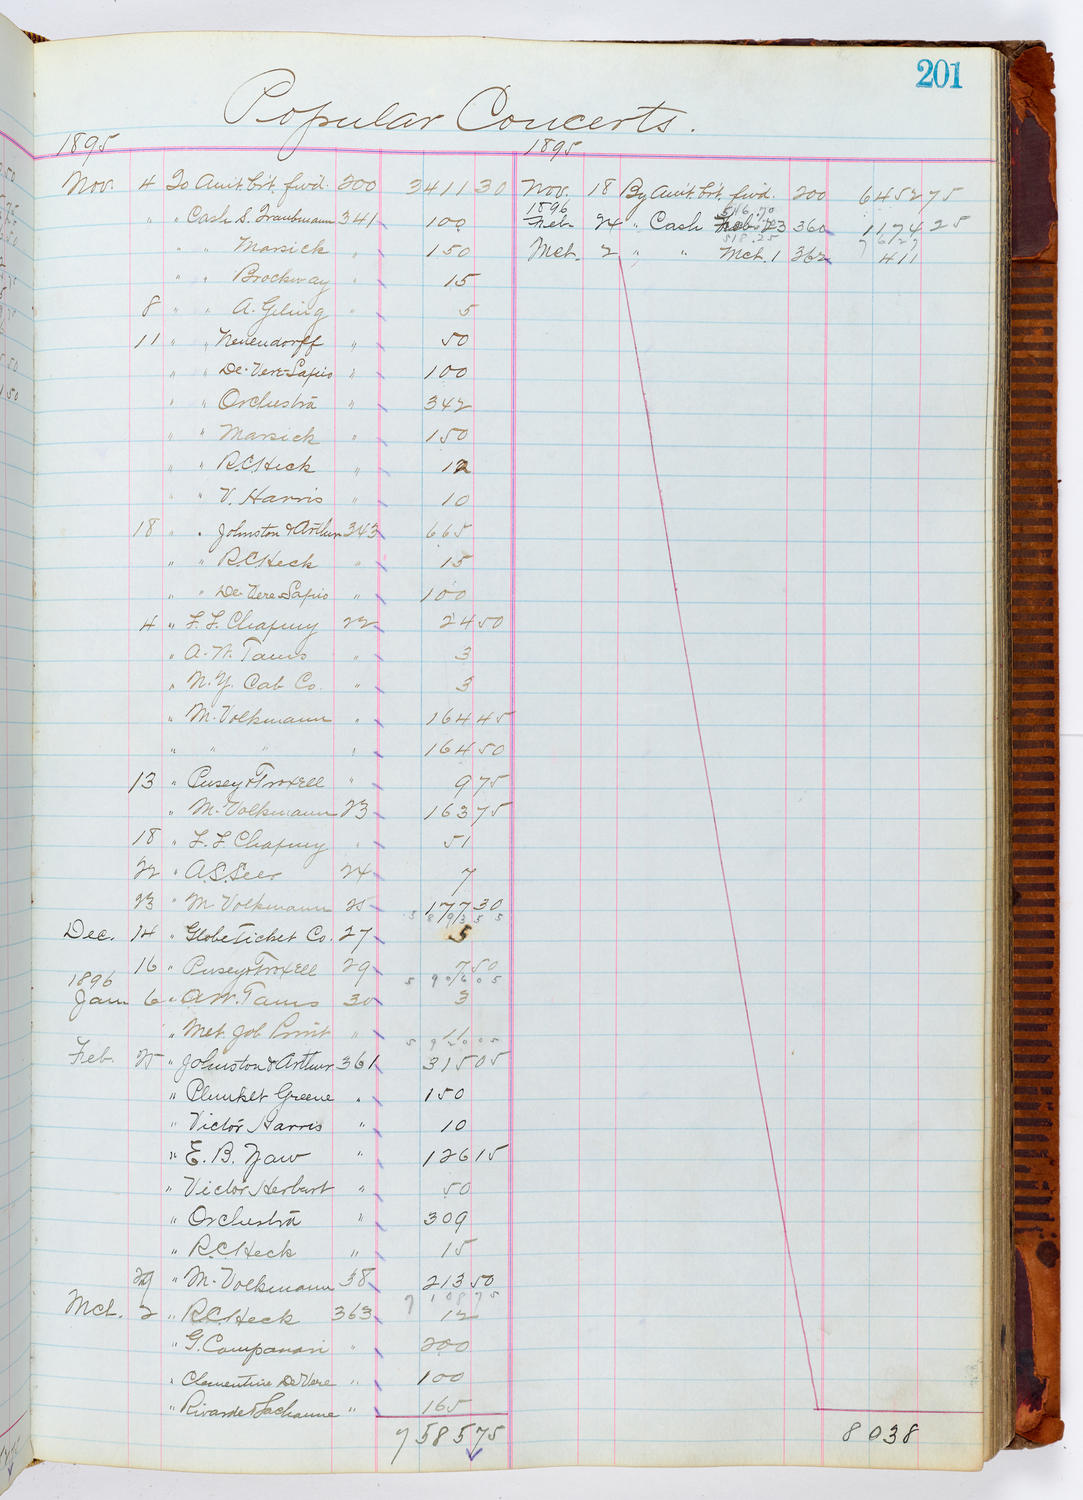 201
Popular Concerts.
1895
Nov. 4 To Amt. brt. fwd. 200 3411 30
" " Cash S. Traubmann 341 100
" " Marsick " 150
" " Brockway " 15
8 " " A. " 5
11 " " Neuendorff " 50
" " De-Vere-Sapio " 100
" " Orchestra " 342
" " Marsick " 150
" " R.C. Heck " 12
" " V. Harris " 10
18 " " Johnston & Arthur 343 665
" " R.C. Heck " 15
" " De Vere-Sapio " 100
4 " F. F. Chapiny 22 24 50
" A. W. Tams " 3
" N.Y. Cab Co. " 3
" M. Volkmann " 164 45
" " " " 164 50
13 " Pusey & Troxell " 9 75
" M. Volkmann 23 163 75
18 " F. F. Chapiny " 51
22 " A.S. Seer 24 7
23 " M Volkmann 25 177 30
5 8 9/3 5 5
Dec. 14 " Globe Ticket Co. 27 5
16 " Pusey & Troxell 29 7 50
5 9 0/6 0 5
1896
Jan 6 " A.W. Tams 30 3
" Met. Job Print " 11
5 9 2 0 0 5
Feb. 25 " Johnston & Arthur 361 315 05
" Plunket Greene " 150
" Victor Harris " 10
" E. B. Yaw " 126 15
" Victor Herbert " 50
" Orchestra " 309
" R.C. Heck " 15
29 " M. Volkmann 38 213 50
7 1 0 8 7 5
Mch. 2 " R.C. Heck 363 12
" G. Campanari " 200
" Clementine De Vere " 100
" Rivarde & Lachaume " 165
7585 75
1895
Nov. 18 By Amt. brt. fwd. 200 6452 75
1896
516.70
Feb. 24 " Cash Feb. 23 360 1174 25
518.25
7 6/27
Mch. 2 " " Mch. 1 362 411
8038